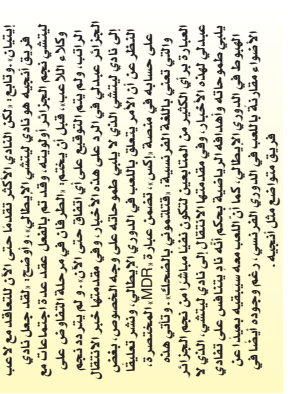 إيتيان،. وتابع: «لكن النادي الأكثر تقدما حتى الآن للتعاقد مع لاعب
فريق أنجيه هو نادي ليتشي الإيطالي،، وأوضح: «لقد جعل نادي
ليتشي نجم الجزائر أولويته، وقد تم بالفعل عقد عدة اجتماعات مع
وكلاء اللاعب،، قبل أن يختم: «الطرفان في مرحلة التفاوض على
الراتب، ولم يتم التوقيع على أي اتفاق حتى الآن،. و لم يتردد نجم
الجزائر عبدلي في الرد على هذه الأخبار، وفي مقدمتها خبر الانتقال
إلى نادي ليتشي الذي لا يلبي طموحاته على وجه الخصوص، بغض
النظر عن أن الأمر يتعلق باللعب في الدوري الإيطالي، ونشر تعليقا
على حسابه في منصة «إكس،، تضمن عبارة «MDR، المختصرة،
والتي تعني باللغة الفرنسية، «قتلتموني بالضحك،. وتأتي هذه
العبارة برأي الكثير من المتابعين لتكون نفيا مباشرا من نجم الجزائر
عبدلي لهذه الأخبار، وفي مقدمتها الانتقال إلى نادي ليتشي، الذي لا
يلبي طموحاته وأهدافه الرياضية بحكم أنه ناد يتنافس على تفادي
الهبوط في الدوري الإيطالي، كما أن اللعب معه سيبقيه بعيدا عن
الأضواء مقارنة باللعب في الدوري الفرنسي، رغم وجوده أيضا في
فريق متواضع مثل أنجيه.